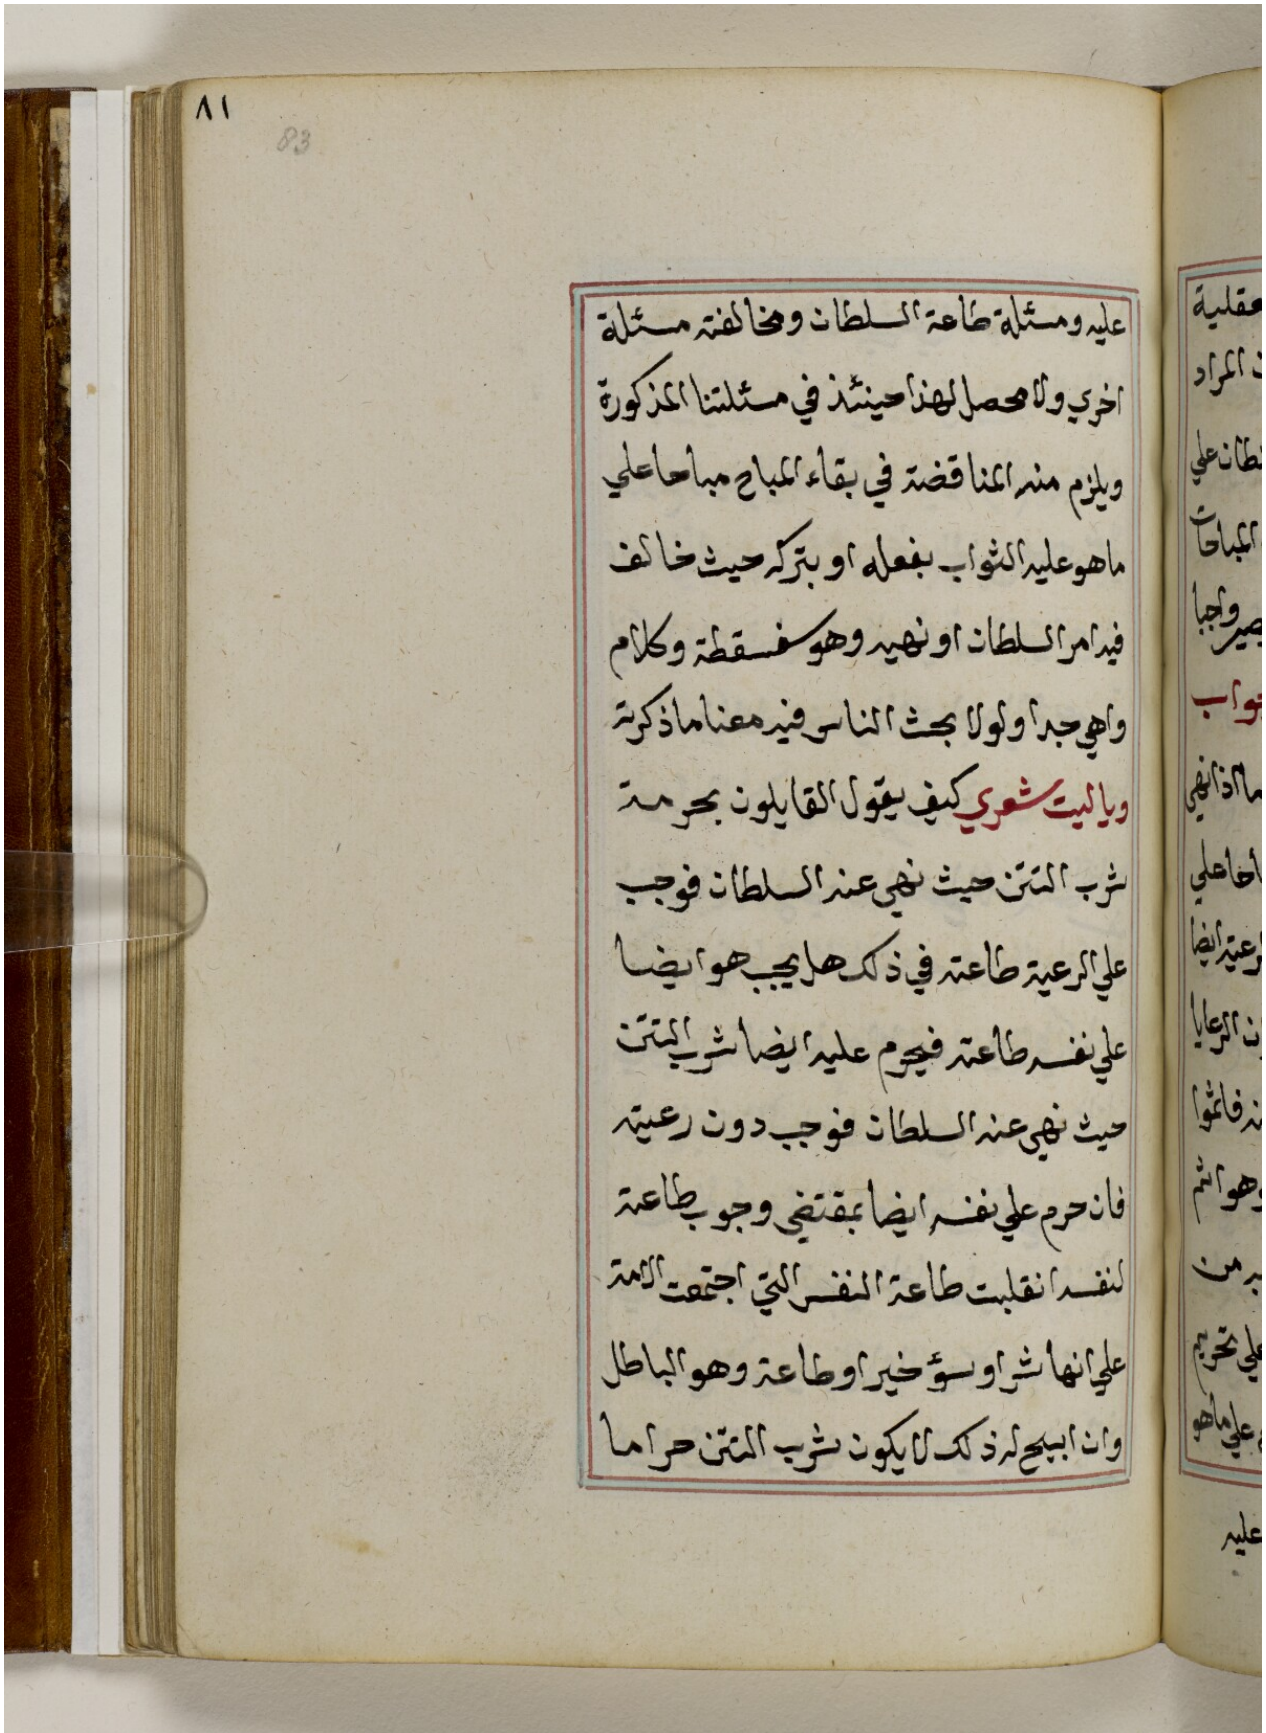 ٨١
83
عليه ومسئلة طاعة السلطان ومخالفته مسئلة
اخري ولا محصل لهذا حينئذ في مسئلتنا المذكورة
ويلزم منه المناقضة في بقاء المباح مباحا علي
ما هو عليه الثواب بفعله او بتركه حيث خالف
فيه امر السلطان او نهيه وهو سفسقطة وكلام
واهي جدا ولولا بحث الناس فيه معنا ما ذكرته
ويا ليت شعري كيف يقول القايلون بحرمة
شرب التتن حيث نهي عنه السلطان فوجب
علي الرعية طاعته في ذلك هل يجب هو ايضا
علي نفسه طاعته فيحرم عليه ايضا شرب التتن
حيث نهي عنه السلطان فوجب دون رعيته
فان حرم علي نفسه ايضا بمقتضي وجوب طاعته
لنفسه انقلبت طاعة النفس التي اجتمعت الامة
علي انها شرا وسؤ خيرا وطاعة وهو الباطل
وان ابيح له ذلك لا يكون شرب التتن حراما
عقلية
المراد
علي
المباحات
يصير واجبا
اذا نهي
علي
ايضا
الرعايا
فاثموا
وهو اثم
من
علي تحريم
علي ما هو
عليه